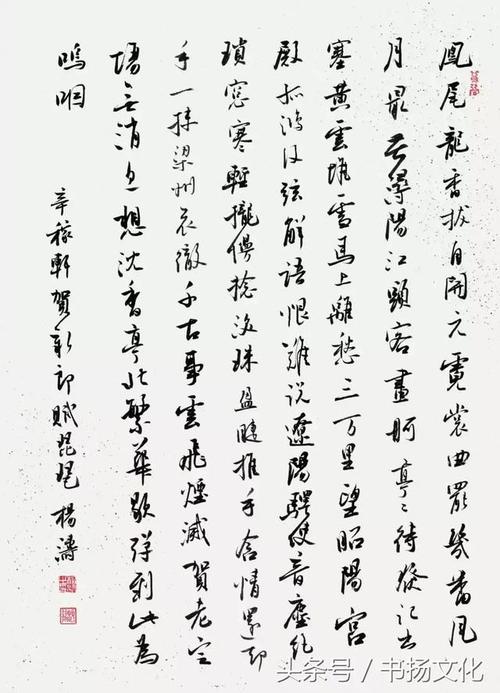 鳳尾龍香拔自開元霓裳曲罷幾番風
月最苦潯陽江頭客畫舸亭々待發記出
塞黃雲堆雪馬上離愁三万里望昭陽宮
殿孤鴻沒弦解語恨難說遼陽驛使音塵絕
瑣窓寒輕攏慢捻淚珠盈睫推手含情還却
手一抹梁州哀徹千古事雲飛煙滅賀老定
場无消息想沈香亭北繁華歇彈到此為
嗚咽
辛稼軒賀新郎賦琵琶 楊濤
头条号 / 书扬文化